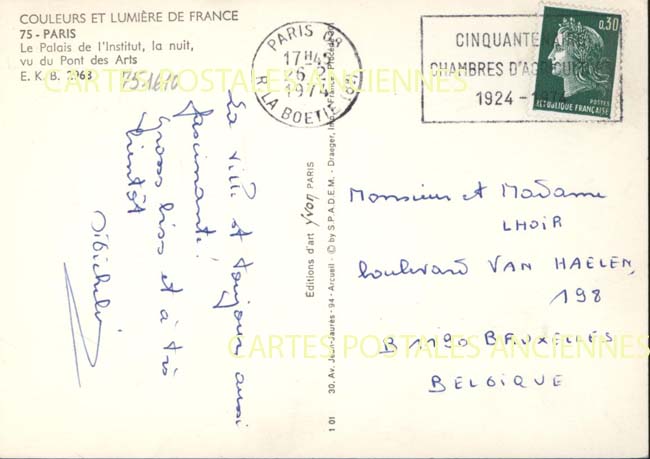 COULEURS ET LUMIÈRE DE FRANCE
75 - PARIS
Le Palais de l'Institut, la nuit,
vu du Pont des Arts
E. K. B. 2963
75-1610
PARIS 08
17H45
26
1974
R. LA BOETIE (8e)
CINQUANTE
CHAMBRES D'AGRICULTURE
1924 - 1974
0,30
POSTES
REPUBLIQUE FRANÇAISE
La ville est toujours aussi
fascinante !
Gross biss et à très
bientôt
Editions d'art Yvon PARIS
30, Av. Jean-Jaurès - 94 - Arcueil - © by S.P.A.D.E.M. - Draeger, Imp.
1 01
Monsieur et Madame
LHOIR
boulevard VAN HAELEN,
198
B 1190 BRUXELLES
BELGIQUE
CARTES POSTALES ANCIENNES
CARTES POSTALES ANCIENNES